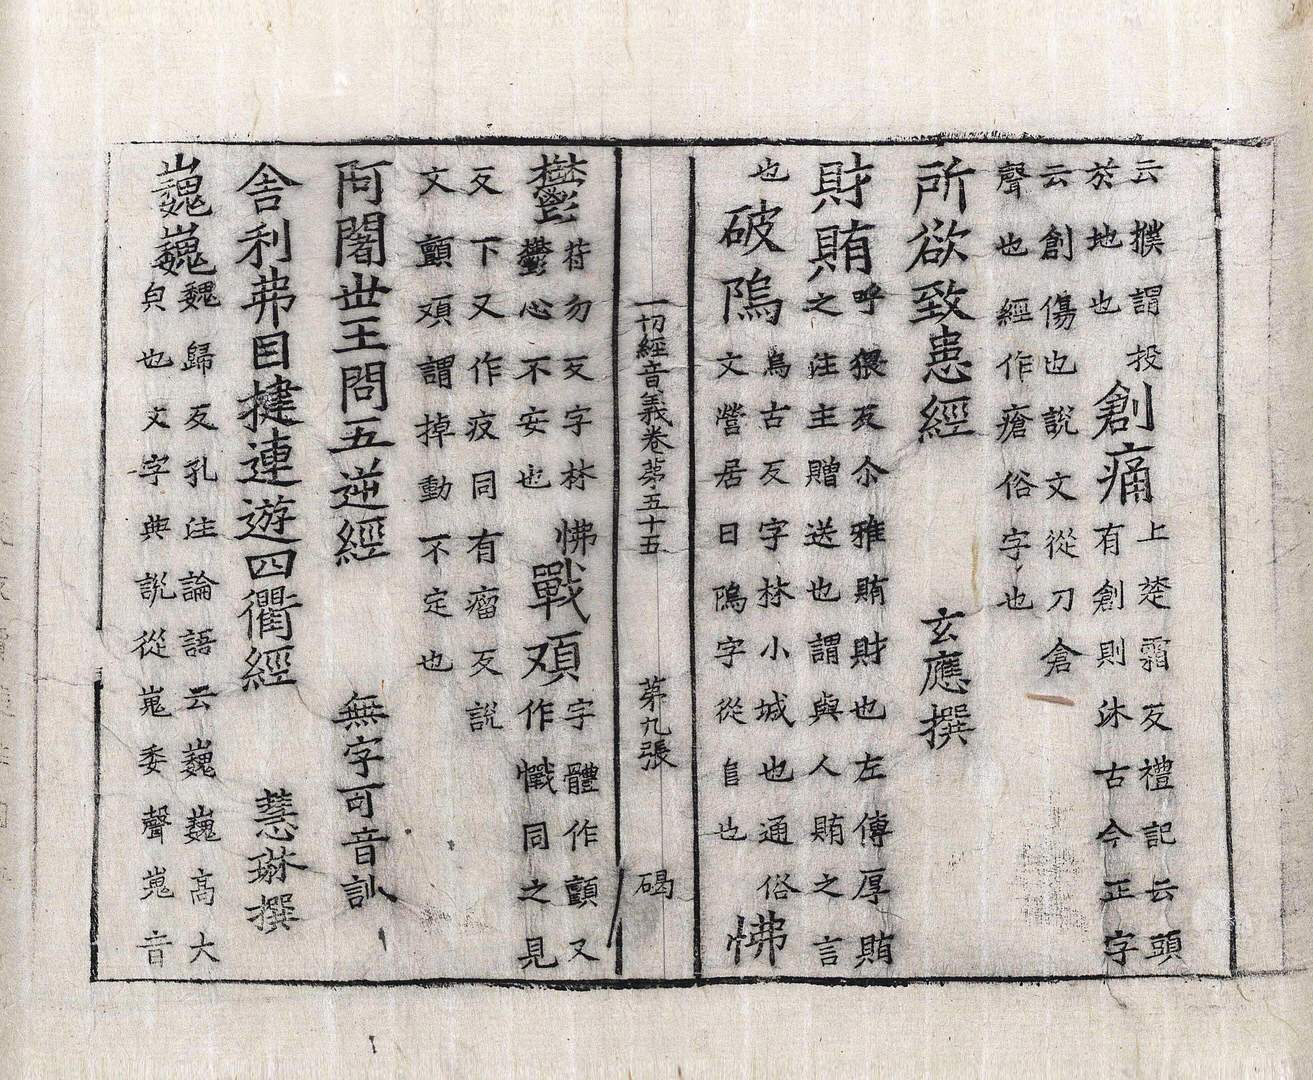 云撲謂投
於地也
創痛
上楚霜反禮記云頭
有創則沐古今正字
云創傷也說文從刀倉
聲也經作瘡俗字也
所欲致患經
玄應撰
財賄
呼猥反尒雅賄財也左傳厚賄
之注主贈送也謂與人賄之言
也
破隖
烏古反字林小城也通俗
文營居曰隖字從𨸏也
怫
一切經音義卷第五十五
第九張
碣
鬱
苻勿反字林怫
鬱心不安也
戰頑
字體作顫又
作懺同之見
反下又作疫同有瘤反說
文顫頑謂掉動不定也
阿闍世王問五逆經
無字可音訓
舍利弗目揵連遊四衢經
慧琳撰
巍巍
魏歸反孔注論語云巍巍高大
皃也文字典說從嵬委聲嵬音